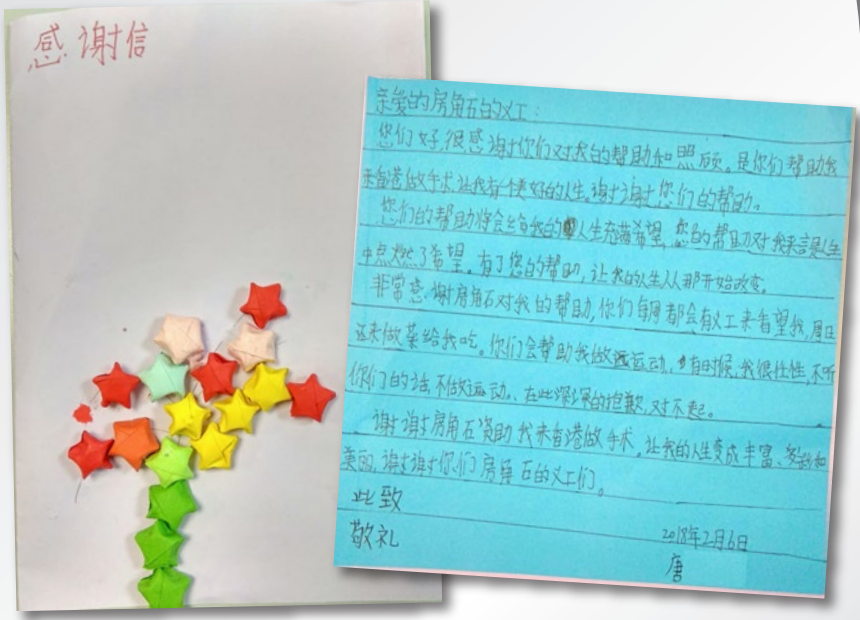 感谢信
亲爱的房角石的义工:
您们好,很感谢你们对我的帮助和照顾。是你们帮助我
来香港做手术,让我有一个美好的人生。谢谢您们的帮助。
您们的帮助将会给我的人生充满希望,您的帮助对我来言是人生
中点燃了希望。有了您的帮助,让我的人生从那开始改变。
非常感谢房角石对我的帮助,你们每周都会有义工来看望我,周日
还来做菜给我吃。你们会帮助我做运动,有时候,我很任性,不听
你们的话,不做运动、在此深深的抱歉,对不起。
谢谢房角石资助我来香港做手术,让我的人生变成丰富、多彩和
美丽,谢谢你们房角石的义工们。
此致
敬礼
2018年2月6日
唐